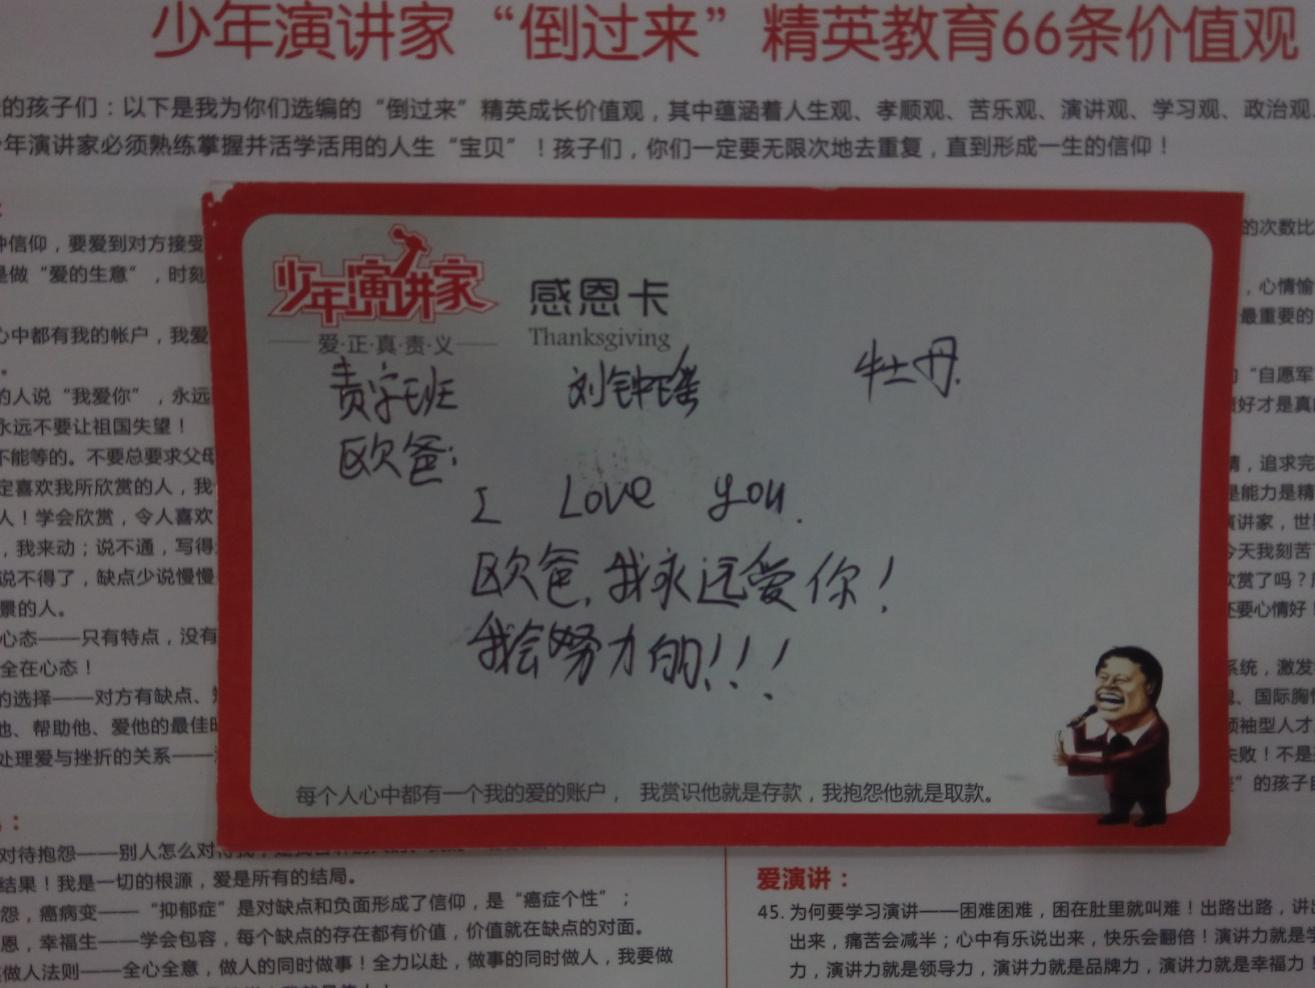 少年演讲家“倒过来”精英教育66条价值观
的孩子们：以下是我为你们选编的“倒过来”精英成长价值观，其中蕴涵着人生观、孝顺观、苦乐观、演讲观、学习观、政治观
年演讲家必须熟练掌握并活学活用的人生“宝贝”！孩子们，你们一定要无限次地去重复，直到形成一生的信仰！
信仰，要爱到对方接受
是做“爱的生意”，时刻
心中都有我的帐户，我爱
的人说“我爱你”，永远
永远不要让祖国失望！
不能等的。不要总要求父母
定喜欢我所欣赏的人，我
人！学会欣赏，令人喜欢
，我来动；说不通，写得
说不得了，缺点少说慢慢
景的人。
心态——只有特点，没有
全在心态！
的选择——对方有缺点、
他、帮助他、爱他的最佳
处理爱与挫折的关系——
少年演讲家
爱·正·真·责·义
感恩卡
Thanksgiving
责字班 刘钟瑶 牡丹.
欧爸:
I Love you.
欧爸,我永远爱你!
我会努力的!!!
每个人心中都有一个我的爱的账户， 我赏识他就是存款，我抱怨他就是取款。
的次数比
，心情愉
最重要的
“自愿军
好才是真
，追求完
是能力是精
演讲家，世
今天我刻苦
欣赏了吗？
还要心情好！
系统，激发
、国际胸
领袖型人才
失败！不是
”的孩子
：
对待抱怨——别人怎么对
结果！我是一切的根源，爱是所有的结局。
怨，癌病变——“抑郁症”是对缺点和负面形成了信仰，是“癌症个性”；
恩，幸福生——学会包容，每个缺点的存在都有价值，价值就在缺点的对面。
做人法则——全心全意，做人的同时做事！全力以赴，做事的同时做人，我要做
爱演讲：
45. 为何要学习演讲——困难困难，困在肚里就叫难！出路出路，讲
出来，痛苦会减半；心中有乐说出来，快乐会翻倍！演讲力就是
力，演讲力就是领导力，演讲力就是品牌力，演讲力就是幸福力！